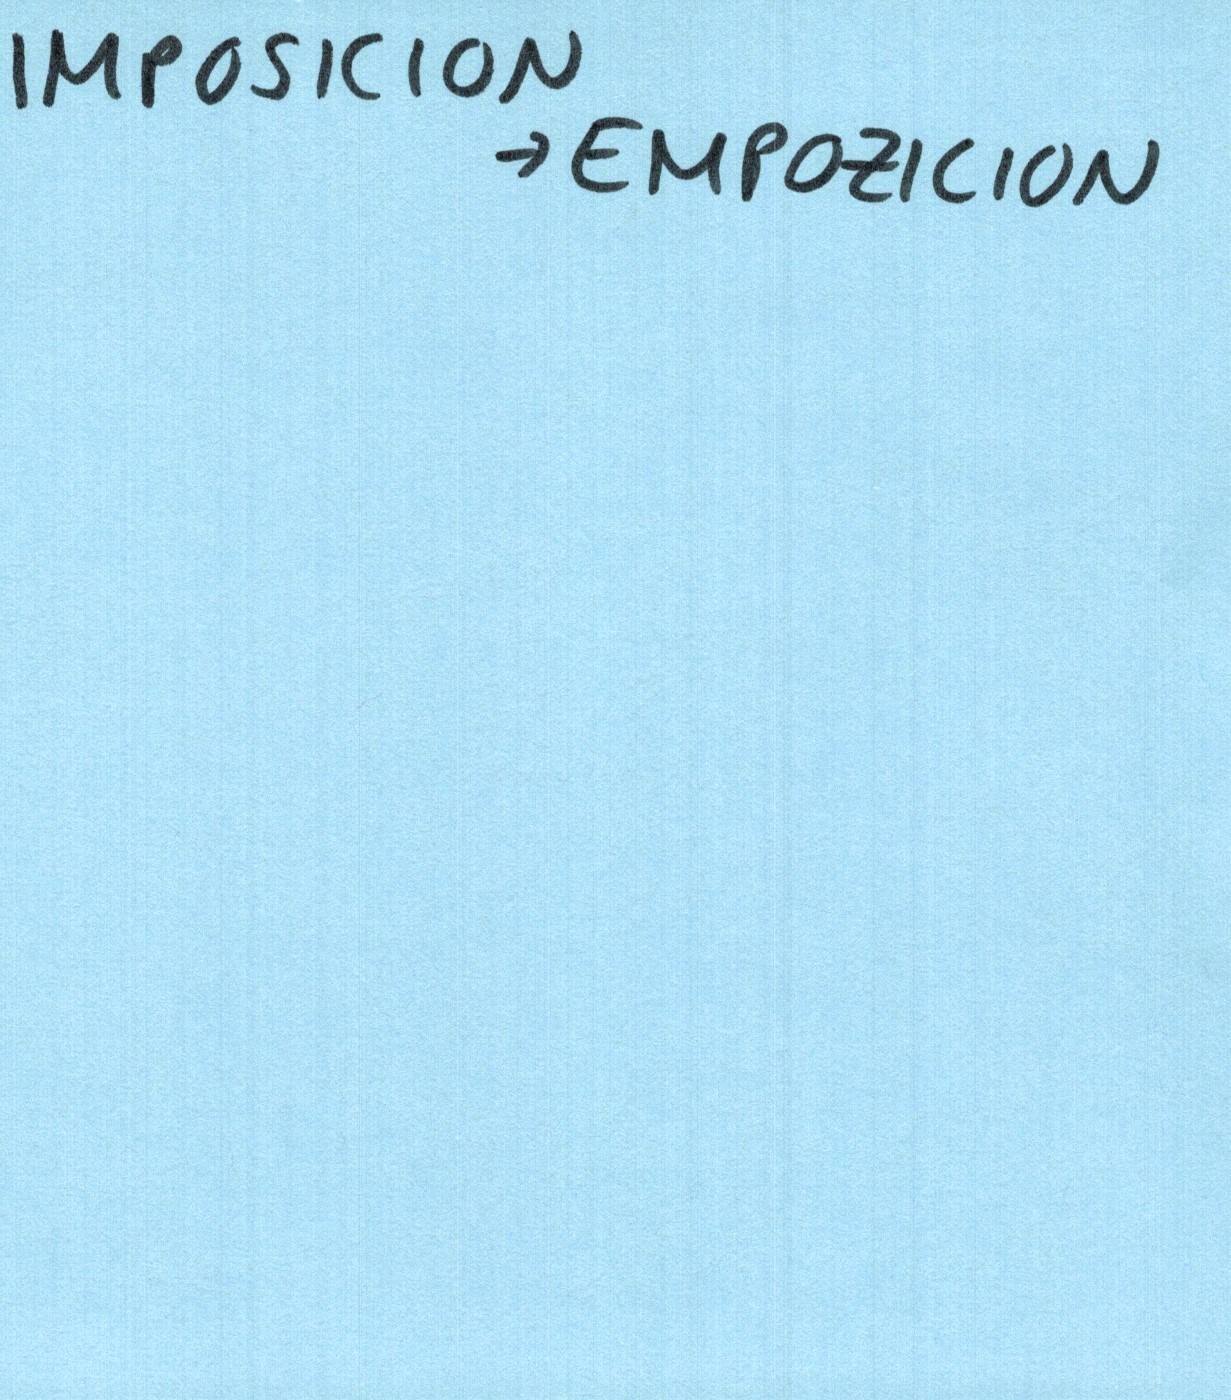 IMPOSICION
→ EMPOZICION